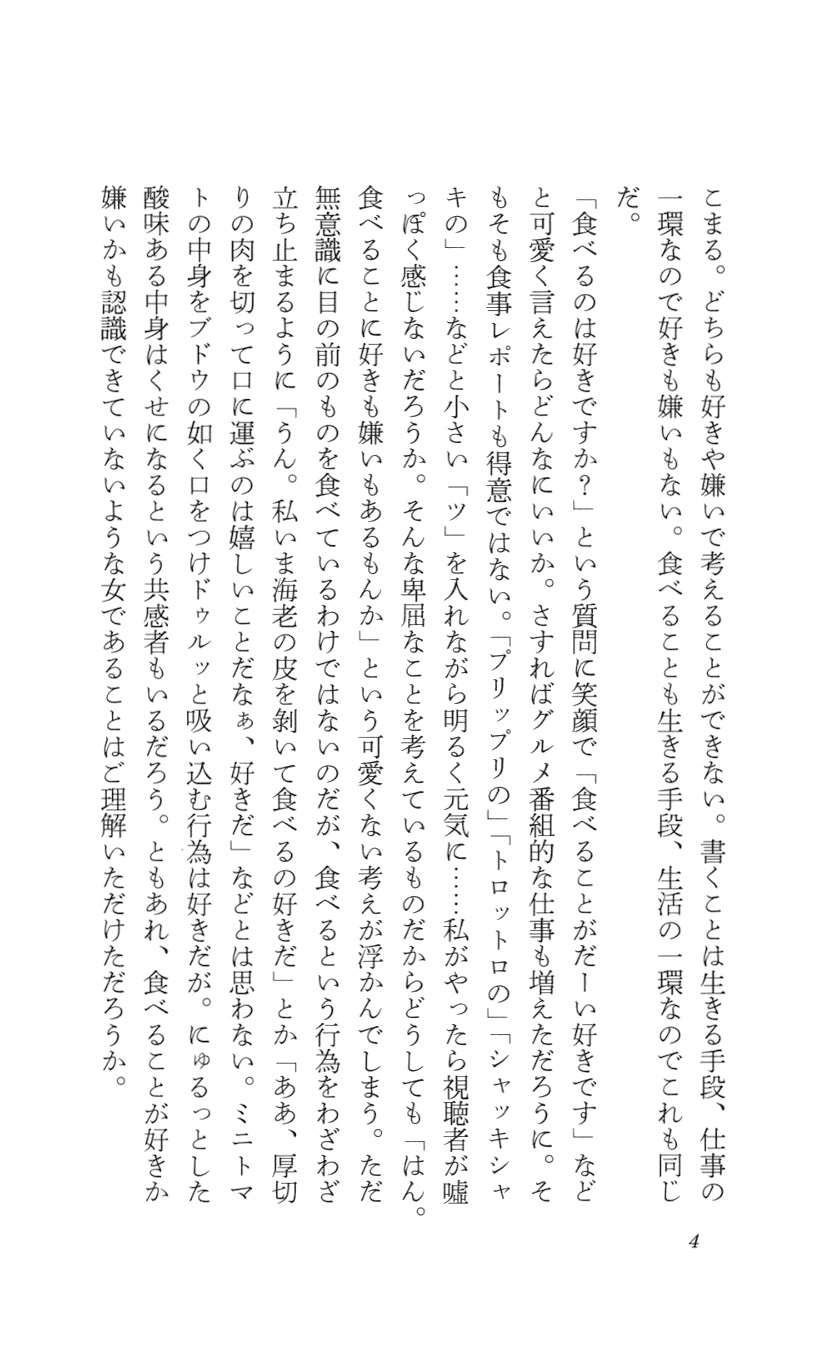 こまる。どちらも好きや嫌いで考えることができない。書くことは生きる手段、仕事の
一環なので好きも嫌いもない。食べることも生きる手段、生活の一環なのでこれも同じ
だ。
「食べるのは好きですか？」という質問に笑顔で「食べることがだーい好きです」など
と可愛く言えたらどんなにいいか。さすればグルメ番組的な仕事も増えただろうに。そ
もそも食事レポートも得意ではない。「プリップリの」「トロットロの」「シャッキシャ
キの」……などと小さい「ツ」を入れながら明るく元気に……私がやったら視聴者が嘘
っぽく感じないだろうか。そんな卑屈なことを考えているものだからどうしても「はん。
食べることに好きも嫌いもあるもんか」という可愛くない考えが浮かんでしまう。ただ
無意識に目の前のものを食べているわけではないのだが、食べるという行為をわざわざ
立ち止まるように「うん。私いま海老の皮を剝いて食べるの好きだ」とか「ああ、厚切
りの肉を切って口に運ぶのは嬉しいことだなぁ、好きだ」などとは思わない。ミニトマ
トの中身をブドウの如く口をつけドゥルッと吸い込む行為は好きだが。にゅるっとした
酸味ある中身はくせになるという共感者もいるだろう。ともあれ、食べることが好きか
嫌いかも認識できていないような女であることはご理解いただけただろうか。
4